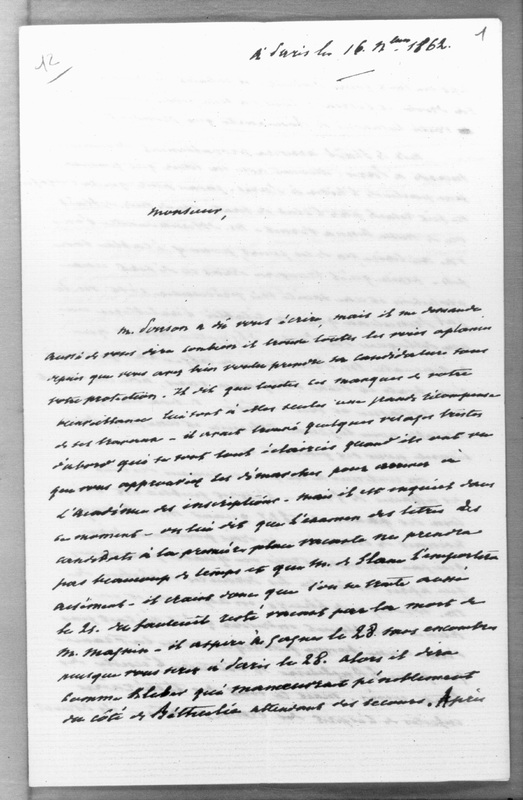 1
12
à Paris le 16. 9bre 1862.
Monsieur,
M. a dû vous écrire, mais il me demande
aussi de vous dire combien il trouve toutes les voies aplanies
depuis que vous avez bien voulu prendre sa candidature sous
votre protection. Il dit que toutes ces marques de votre
bienveillance lui sont à elles seules une grande récompense
de ses travaux - il avait trouvé quelques visages tristes
d'abord qui se sont tout éclaircis quand ils ont vu
que vous approuviez les démarches pour arriver à
l'Académie des inscriptions - mais il est inquiet dans
ce moment - on lui dit que l'examen des titres des
candidats à la première place vacante ne prendra
pas beaucoup de temps et que M. de Slane l'emportera
aisément - il craint donc que l'on ne traite aussi
le 21. du fauteuil resté vacant par la mort de
M. Magnin - il aspire à gagner le 28. sans encombre
puisque vous serez à Paris le 28. alors il dira
comme Kleber qui manœuvrait péniblement
du côté de Béthulie attendant des secours. Après